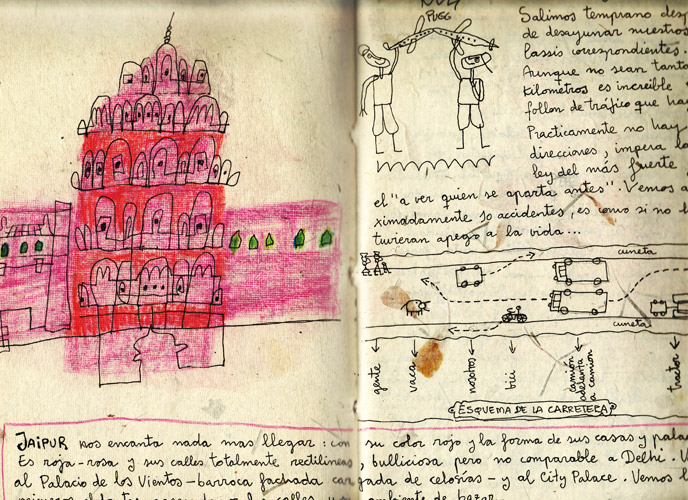 PUGG
Salimos temprano desp
de desayunar nuestros
lassis correspondientes.
Aunque no sean tanto
kilómetros es increíble
follon de tráfico que ha
Practicamente no hay
direcciones, impera la
ley del más fuerte
el "a ver quien se aparta antes". Vemos a
ximadamente 10 accidentes, es como si no l
tuvieran apego a la vida...
cuneta
cuneta
gente
vaca
nosotros
bici
camión
adelanta
a camión
tractor
ESQUEMA DE LA CARRETERA
JAIPUR nos encanta nada mas llegar: con su color rojo y la forma de sus casas y pala
Es roja-rosa y sus calles totalmente rectilineas, bulliciosa pero no comparable a Delhi. V
al Palacio de los Vientos-barroca fachada cargada de celosías - y al City Palace. Vemos l
ambiente de bazar